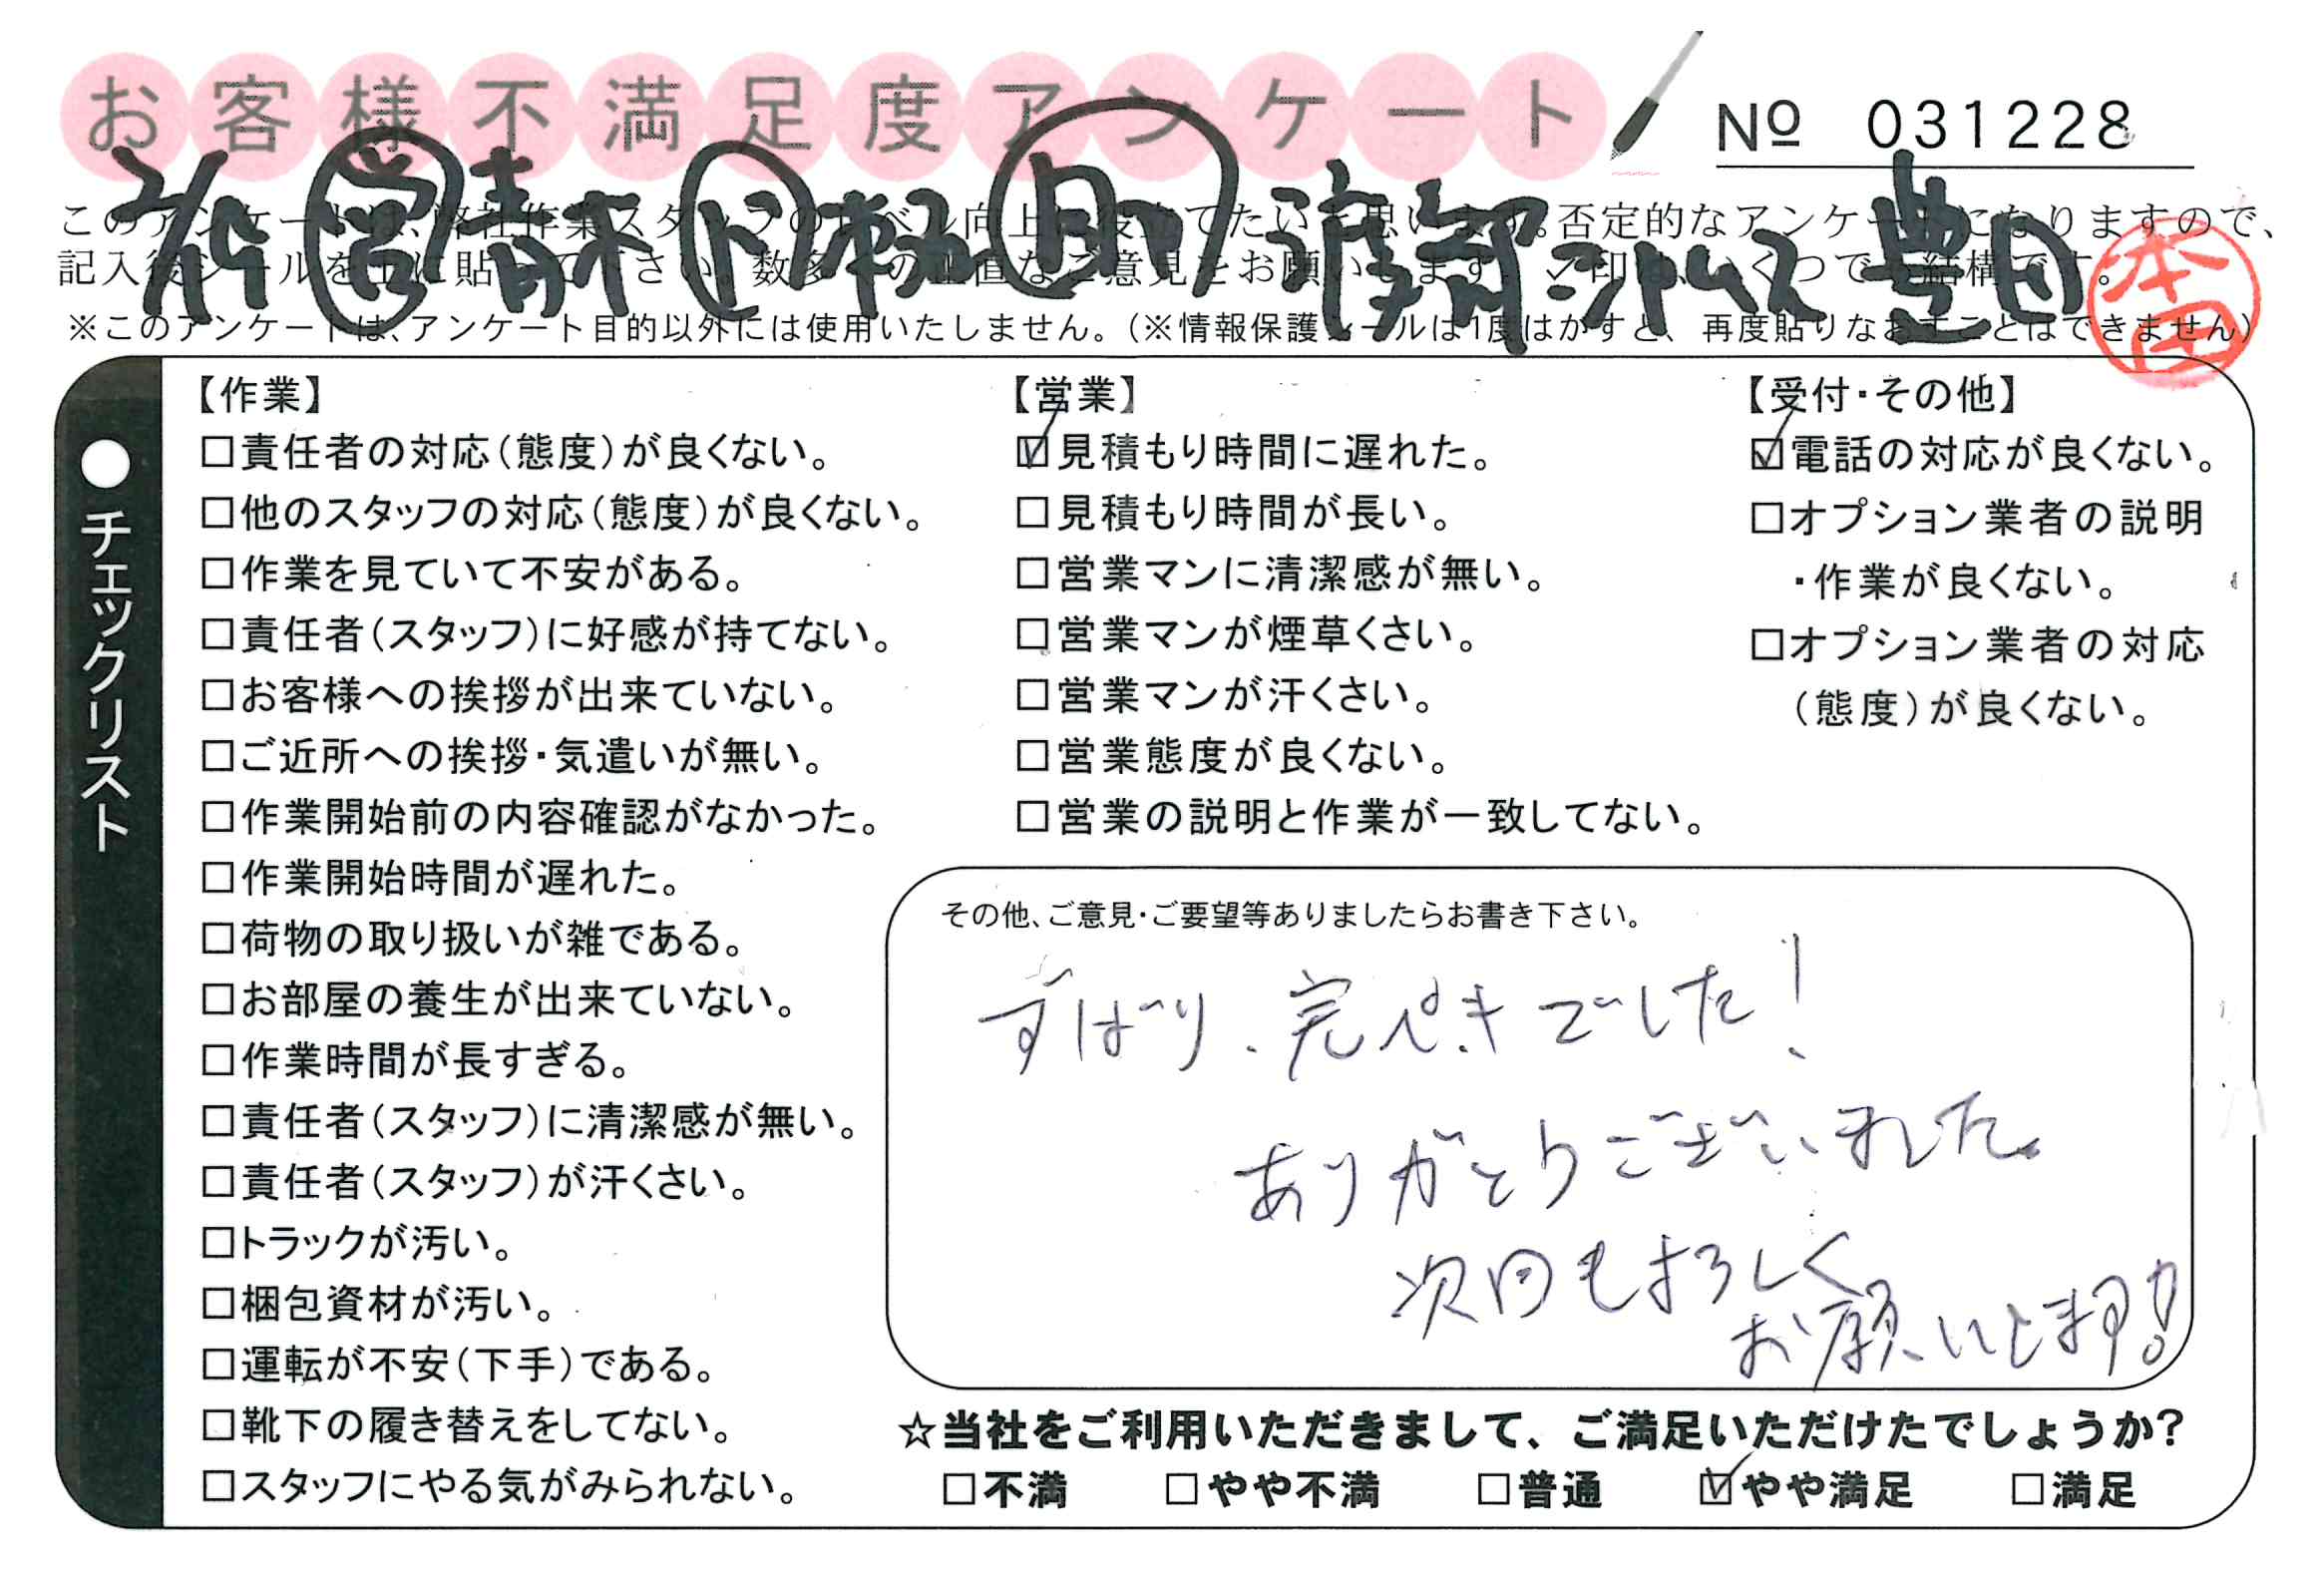 お客様不満足度アンケート
№ 031228
2/19 営 青木 ド 助 渡部 豊田
本田
このアンケートは、弊社作業スタッフのレベル向上に役立てたいと思います。否定的なアンケートになりますので、
記入後シールを上に貼って下さい。数多くの正直なご意見をお願いします。✓印は、いくつでも結構です。
※このアンケートは、アンケート目的以外には使用いたしません。(※情報保護シールは1度はがすと、再度貼りなおすことはできません)
●チェックリスト
【作業】
□責任者の対応(態度)が良くない。
□他のスタッフの対応(態度)が良くない。
□作業を見ていて不安がある。
□責任者(スタッフ)に好感が持てない。
□お客様への挨拶が出来ていない。
□ご近所への挨拶・気遣いが無い。
□作業開始前の内容確認がなかった。
□作業開始時間が遅れた。
□荷物の取り扱いが雑である。
□お部屋の養生が出来ていない。
□作業時間が長すぎる。
□責任者(スタッフ)に清潔感が無い。
□責任者(スタッフ)が汗くさい。
□トラックが汚い。
□梱包資材が汚い。
□運転が不安(下手)である。
□靴下の履き替えをしてない。
□スタッフにやる気がみられない。
【営業】
☑見積もり時間に遅れた。
□見積もり時間が長い。
□営業マンに清潔感が無い。
□営業マンが煙草くさい。
□営業マンが汗くさい。
□営業態度が良くない。
□営業の説明と作業が一致してない。
【受付・その他】
☑電話の対応が良くない。
□オプション業者の説明
・作業が良くない。
□オプション業者の対応
(態度)が良くない。
その他、ご意見・ご要望等ありましたらお書き下さい。
ずばり、完ぺきでした!
ありがとうございました。
次回もよろしく
お願いします!
☆当社をご利用いただきまして、ご満足いただけたでしょうか?
□不満 □やや不満 □普通 ☑やや満足 □満足